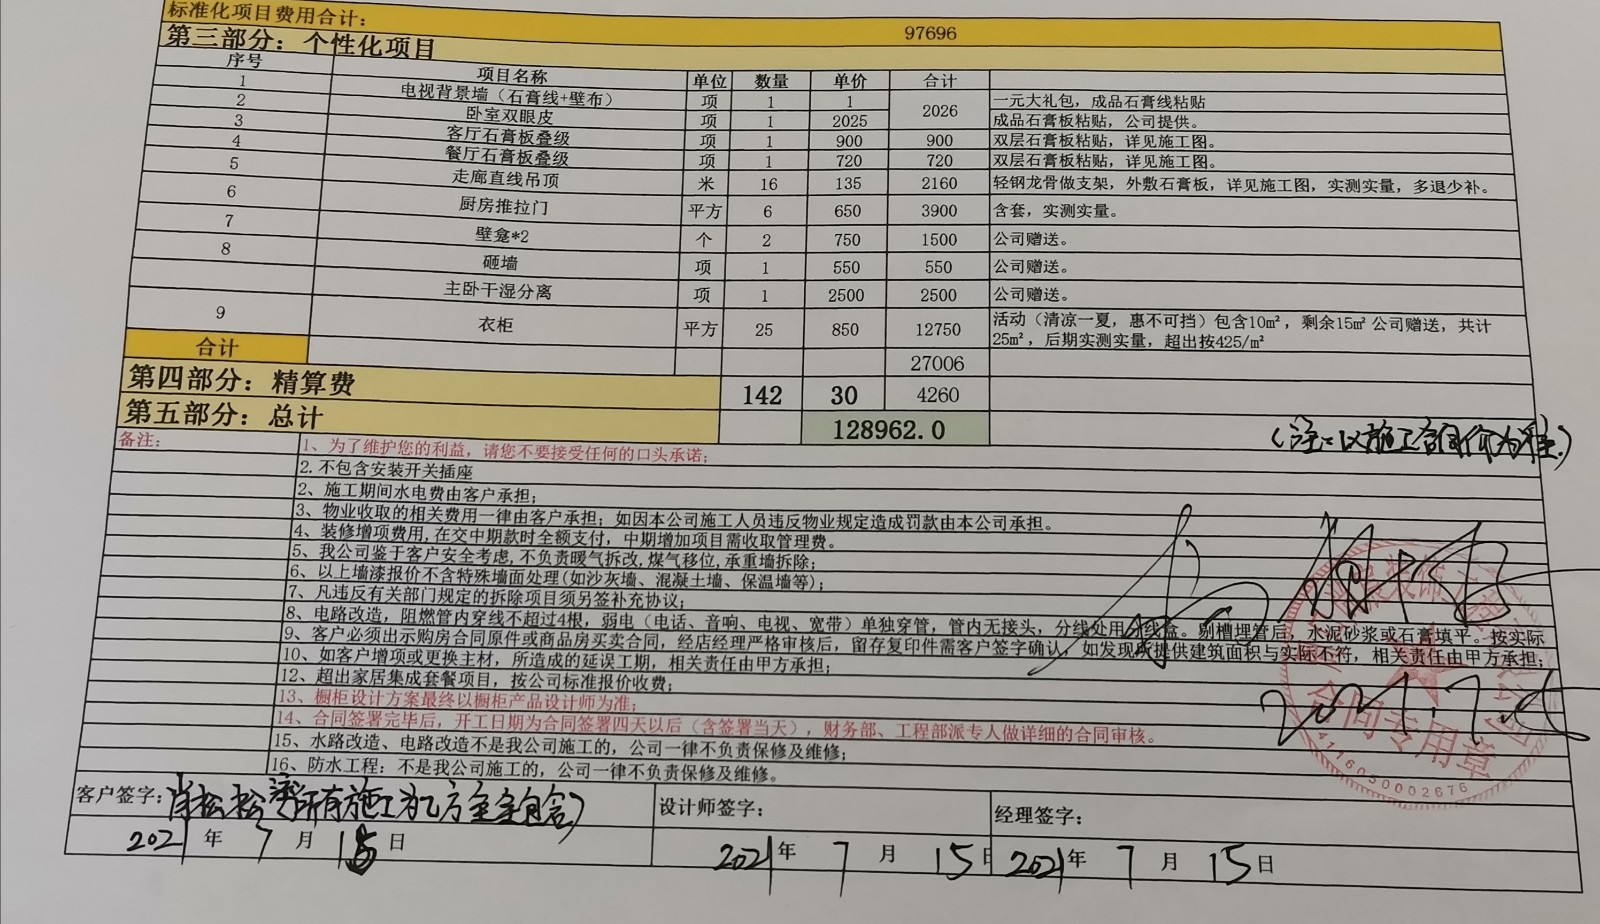 标准化项目费用合计： 97696
第三部分：个性化项目
序号 项目名称 单位 数量 单价 合计
1 电视背景墙（石膏线+壁布） 项 1 1 2026 一元大礼包，成品石膏线粘贴
2 卧室双眼皮 项 1 2025 成品石膏板粘贴，公司提供。
3 客厅石膏板叠级 项 1 900 900 双层石膏板粘贴，详见施工图。
4 餐厅石膏板叠级 项 1 720 720 双层石膏板粘贴，详见施工图。
5 走廊直线吊顶 米 16 135 2160 轻钢龙骨做支架，外敷石膏板，详见施工图，实测实量，多退少补。
6 厨房推拉门 平方 6 650 3900 含套，实测实量。
7 壁龛*2 个 2 750 1500 公司赠送。
8 砸墙 项 1 550 550 公司赠送。
主卧干湿分离 项 1 2500 2500 公司赠送。
9 衣柜 平方 25 850 12750 活动（清凉一夏，惠不可挡）包含10m²，剩余15m²公司赠送，共计
25m²，后期实测实量，超出按425/m²
合计 27006
第四部分：精算费 142 30 4260
第五部分：总计 128962.0
（注：以施工合同价为准）
备注： 1、为了维护您的利益，请您不要接受任何的口头承诺；
2.不包含安装开关插座
2、施工期间水电费由客户承担；
3、物业收取的相关费用一律由客户承担；如因本公司施工人员违反物业规定造成罚款由本公司承担。
4、装修增项费用,在交中期款时全额支付，中期增加项目需收取管理费。
5、我公司鉴于客户安全考虑,不负责暖气拆改,煤气移位,承重墙拆除；
6、以上墙漆报价不含特殊墙面处理(如沙灰墙、混凝土墙、保温墙等)；
7、凡违反有关部门规定的拆除项目须另签补充协议；
8、电路改造，阻燃管内穿线不超过4根，弱电（电话、音响、电视、宽带）单独穿管，管内无接头，分线处用分线盒。剔槽埋管后，水泥砂浆或石膏填平。按实际
9、客户必须出示购房合同原件或商品房买卖合同，经店经理严格审核后，留存复印件需客户签字确认，如发现所提供建筑面积与实际不符，相关责任由甲方承担；
10、如客户增项或更换主材，所造成的延误工期，相关责任由甲方承担；
12、超出家居集成套餐项目，按公司标准报价收费；
13、橱柜设计方案最终以橱柜产品设计师为准；
14、合同签署完毕后，开工日期为合同签署四天以后（含签署当天），财务部、工程部派专人做详细的合同审核。
15、水路改造、电路改造不是我公司施工的，公司一律不负责保修及维修；
16、防水工程：不是我公司施工的，公司一律不负责保修及维修。
合同专用章
4116050002676
客户签字： 肖松松 所有施工为乙方全包含）
设计师签字：
经理签字：
2021年7月15日
2021年7月15日
2021年7月15日